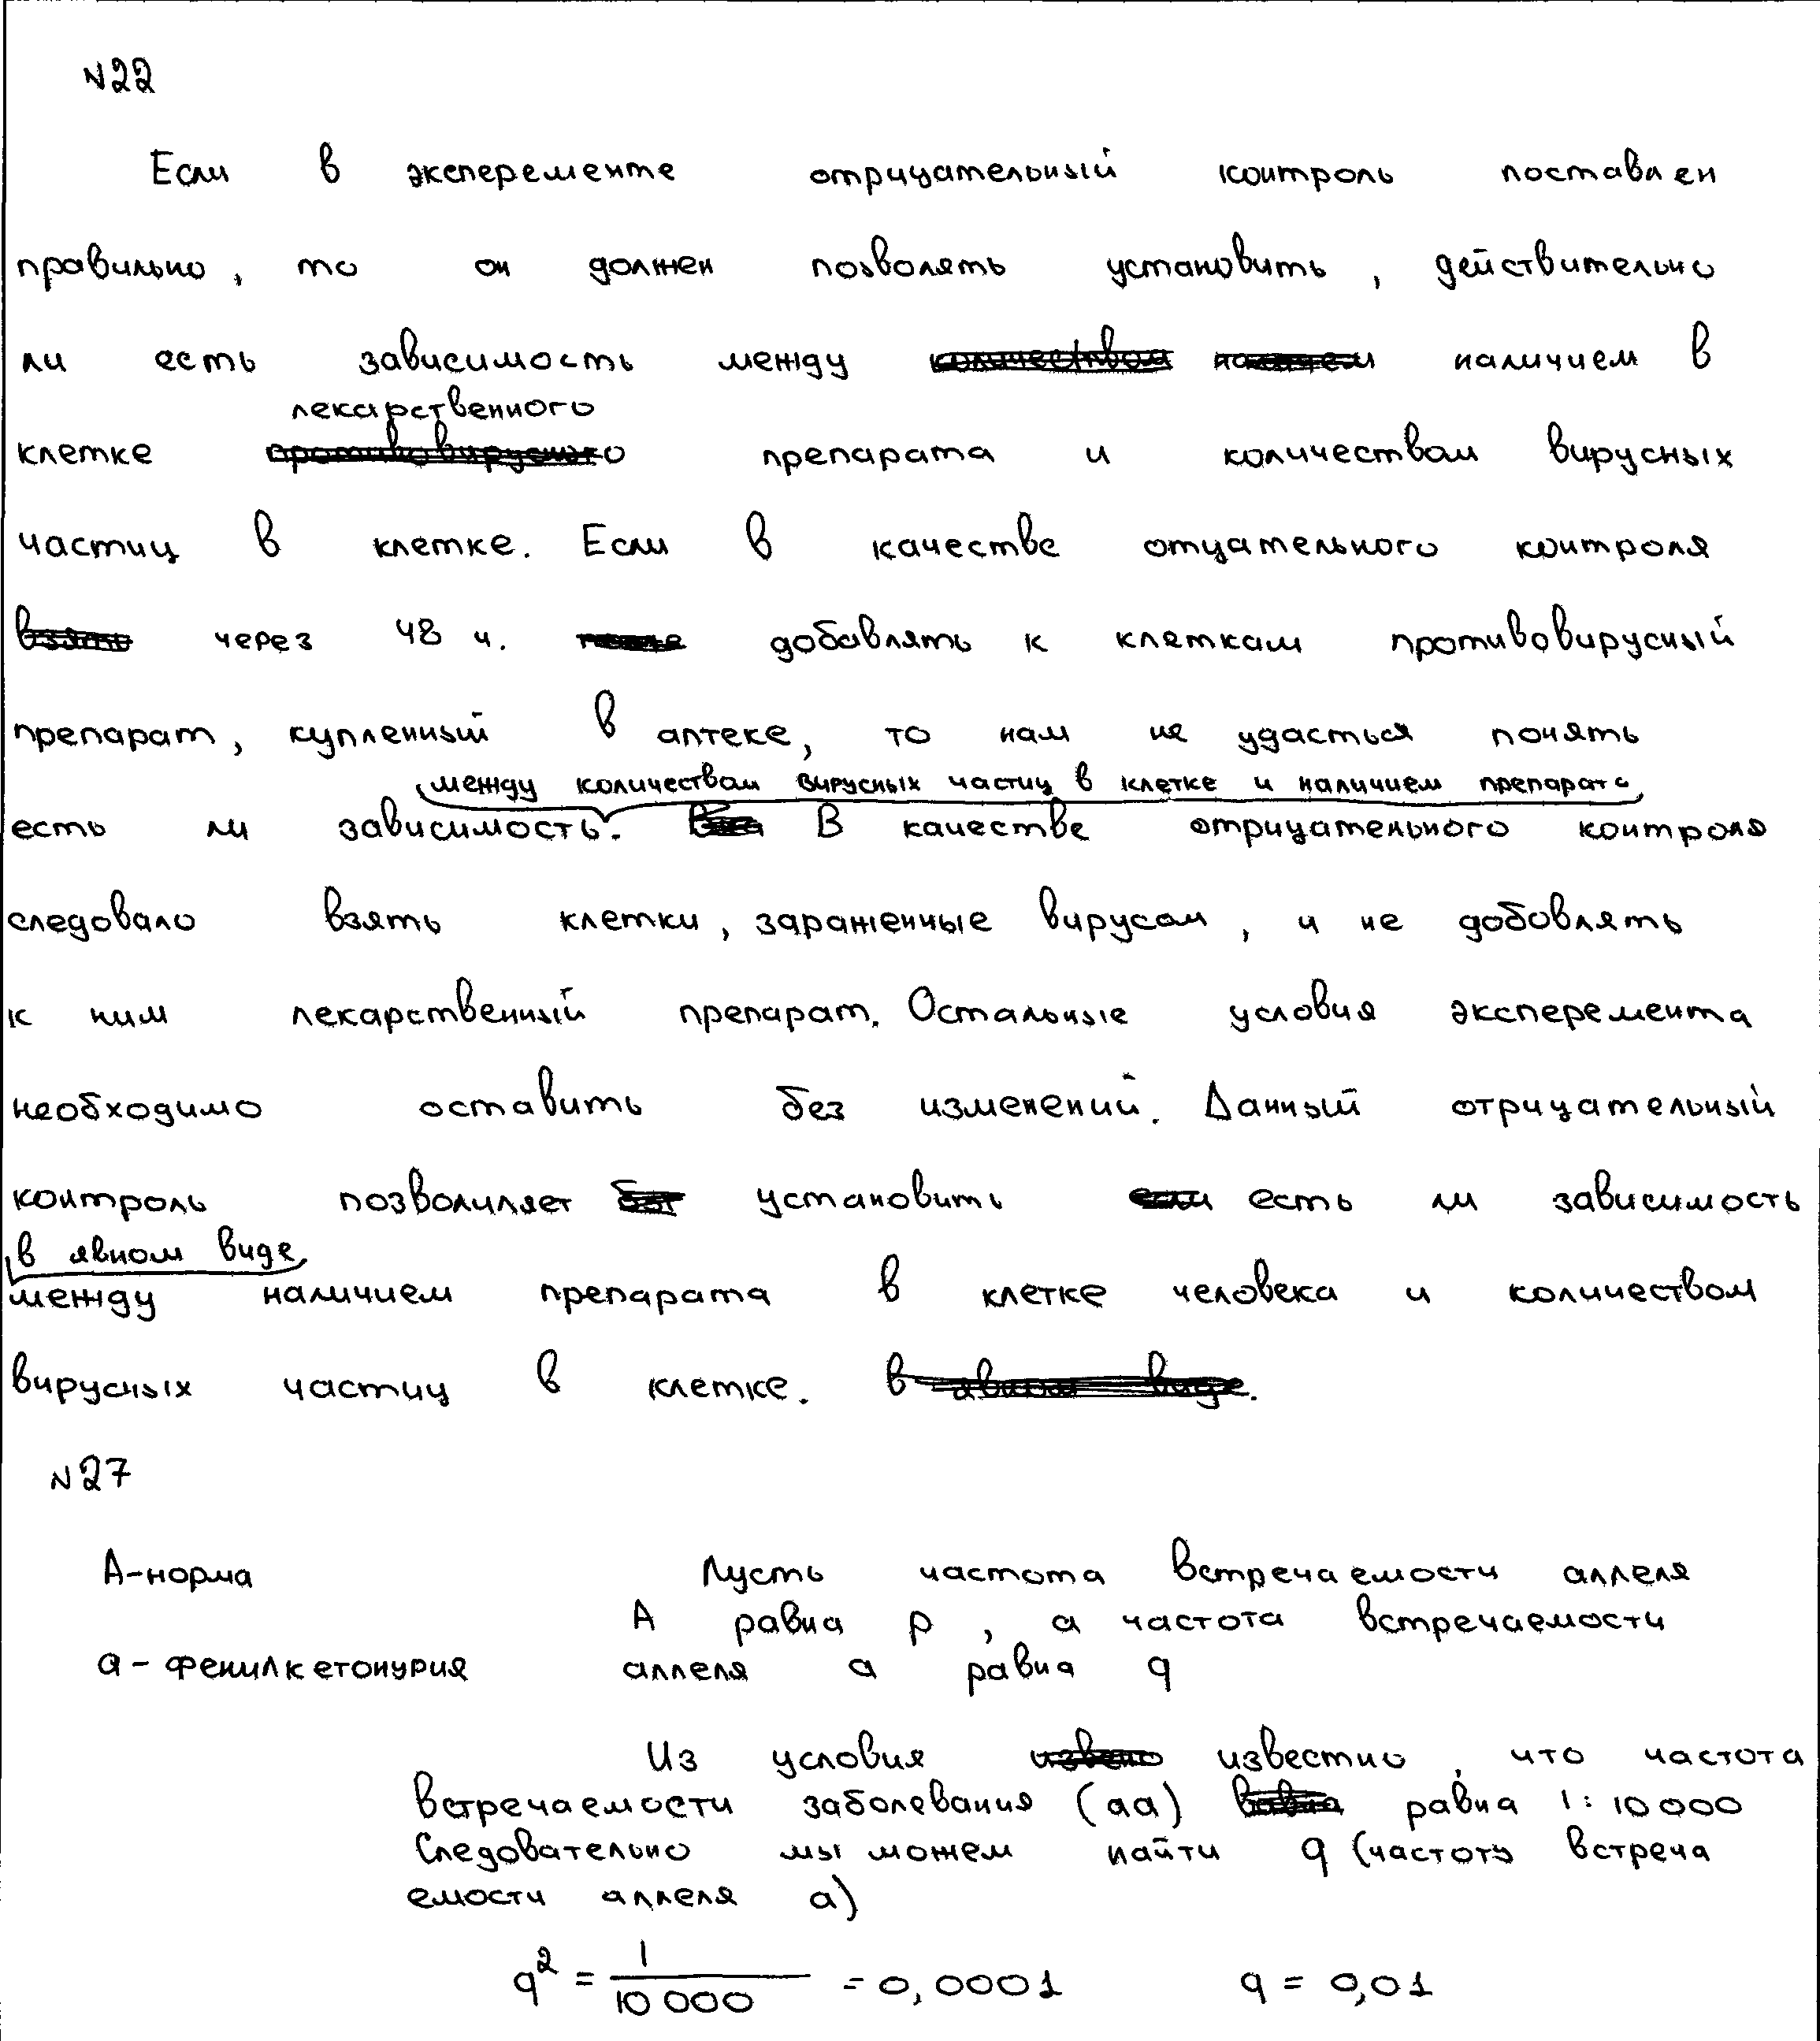 N22
Если в эксперементе отрицательный контроль поставлен
правильно, то он должен позволять установить, действительно
ли есть зависимость между наличием в
лекарственного
клетке препарата и количеством вирусных
частиц в клетке. Если в качестве отцательного контроля
через 48 ч. добавлять к клеткам противовирусный
препарат, купленный в аптеке, то нам не удасться понять
между количеством вирусных частиц в клетке и наличием препарата
есть ли зависимость. В качестве отрицательного контроля
следовало взять клетки, зараженные вирусом, и не добовлять
к ним лекарственный препарат. Остальные условия эксперемента
необходимо оставить без изменений. Данный отрицательный
контроль позволиляет установить есть ли зависимость
в явном виде
между наличием препарата в клетке человека и количеством
вирусных частиц в клетке.
N27
А-норма Пусть частота встречаемости аллеля
А равна p, а частота встречаемости
а - фенилкетонурия аллеля а равна q
Из условия известно, что частота
встречаемости заболевания (аа) равна 1:10000
Следовательно мы можем найти q (частоту встреча
емости аллеля а)
q² = 1/10 000 = 0,0001 q = 0,01